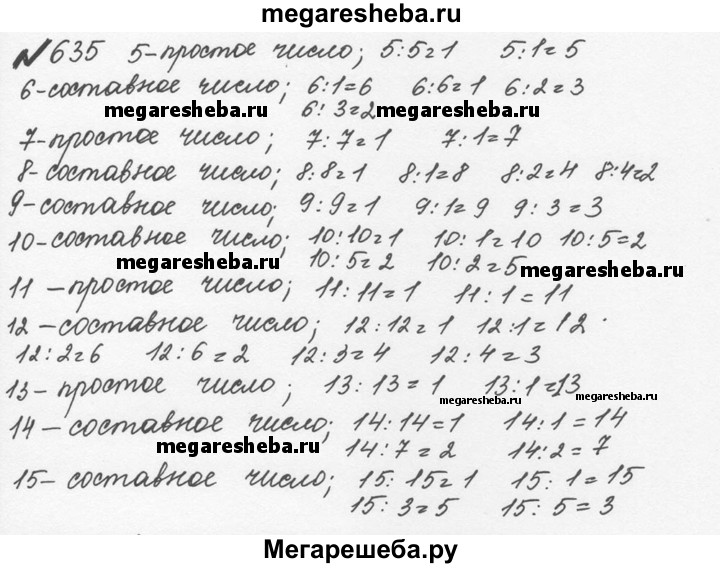 megaresheba.ru
№635 5-простое число; 5:5=1 5:1=5
6-составное число; 6:1=6 6:6=1 6:2=3
megaresheba.ru 6:3=2 megaresheba.ru
7-простое число; 7:7=1 7:1=7
8-составное число; 8:8=1 8:1=8 8:2=4 8:4=2
9-составное число; 9:9=1 9:1=9 9:3=3
10-составное число; 10:10=1 10:1=10 10:5=2
megaresheba.ru 10:5=2 10:2=5 megaresheba.ru
11-простое число; 11:11=1 11:1=11
12-составное число; 12:12=1 12:1=12
12:2=6 12:6=2 12:3=4 12:4=3
13-простое число; 13:13=1 13:1=13
megaresheba.ru megaresheba.ru
14-составное число; 14:14=1 14:1=14
megaresheba.ru 14:7=2 14:2=7
15-составное число; 15:15=1 15:1=15
15:3=5 15:5=3
Мегарешеба.ру